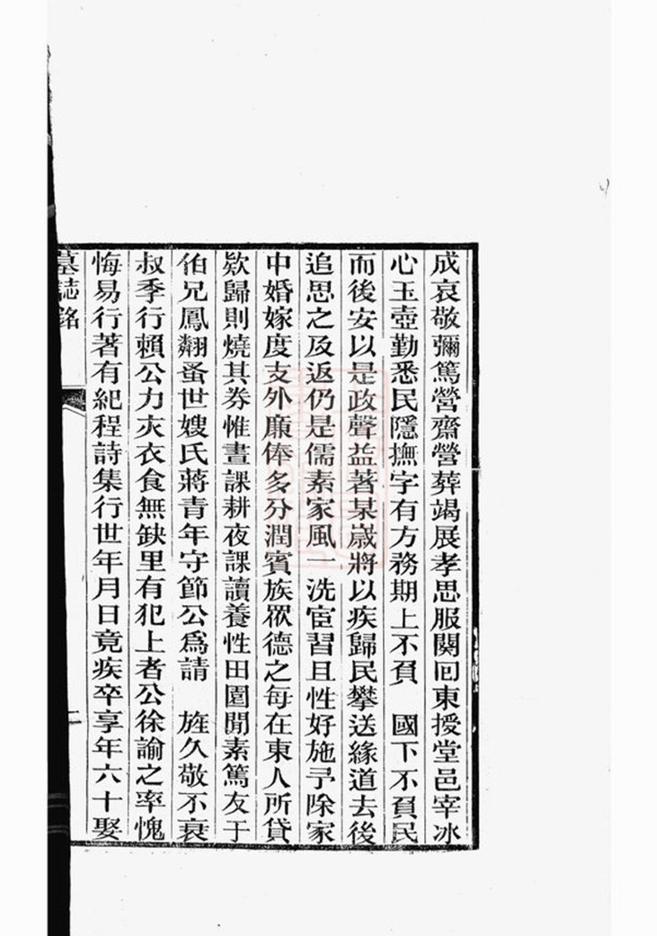 成哀敬彌篤營齋營葬竭展孝思服闋回東授堂邑宰冰
心玉壺勤悉民隱撫字有方務期上不負　國下不負民
而後安以是政聲益著某歲將以疾歸民攀送緣道去後
追思之及返仍是儒素家風一洗宦習且性好施予除家
中婚嫁度支外廉俸多分潤賓族眾德之每在東人所貸
欵歸則燒其券惟晝課耕夜課讀養性田園閒素篤友于
伯兄鳳翽蚤世嫂氏蔣青年守節公爲請　旌久敬不衰
叔季行賴公力衣食無缺里有犯上者公徐諭之率愧
悔易行著有紀程詩集行世年月日竟疾卒享年六十娶
墓誌銘
二